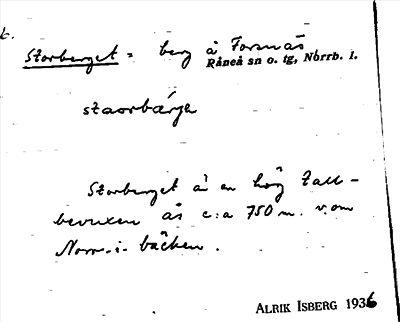 t.
Storberget = berg å Forsnäs
Råneå sn o. tg, Norrb. l.
staorbærje
Storberget är en hög tall-
bevuxen ås c:a 750 m. v. om
Norr-i-bäcken.
ALRIK ISBERG 1936